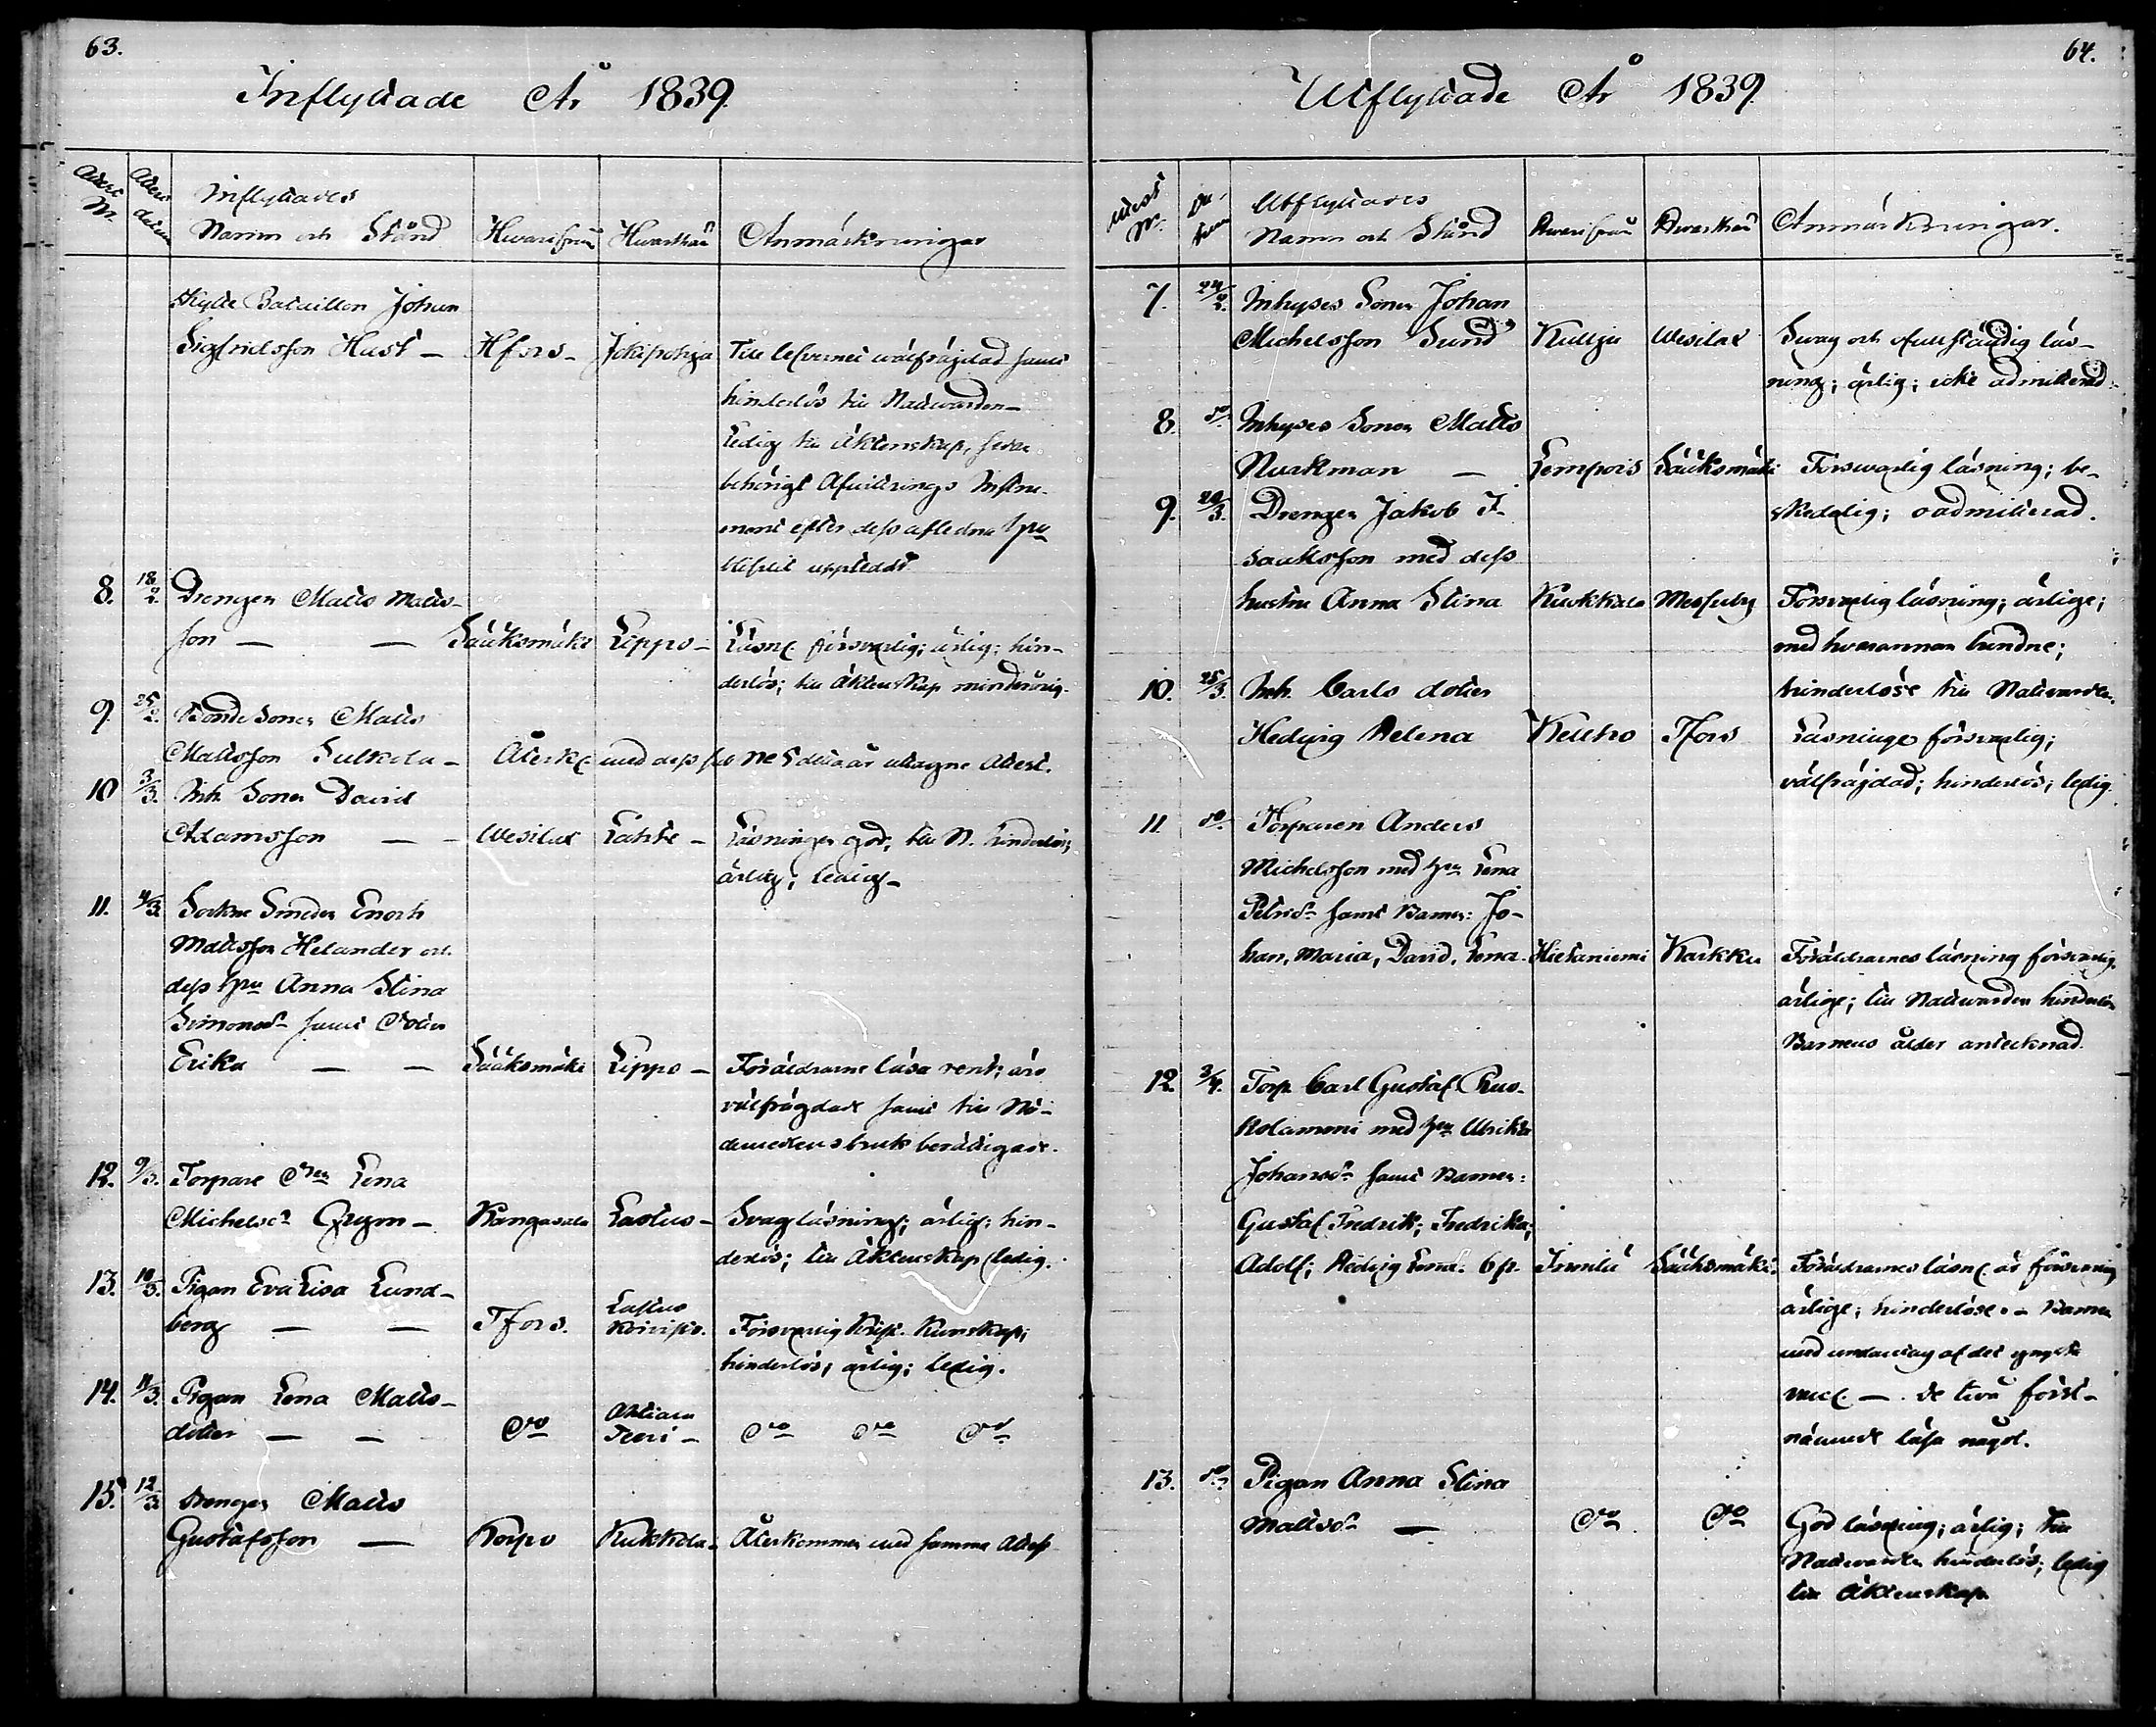 63.
Inflyttade År 1839.
Attest Nr.
Attest datum
Inflyttades
Namn och Stånd
Hvarifrån
Hvarthän
Anmärkningar
Skytte Bataillon Johan
Sigfridsson Hast — Hfors - Jokipohja Till lefvernet wälfräjdad samt
hinderlös till Nattwarden -
Ledig till äktenskap,
behörigt Afvittrings Instru-
ment efter dess aflidna Hru
blifvit uppteddt
8. 18/2. Drengen Matts Matts-
son — — Sääksmäki Lippo - Läsn. försvarlig; ärlig; hin-
derlös; till äktenskap minderårig.
9. 25/2. Bonde Sonen Matts
Mattsson Sulkola - Återk. med dess sub No 5 detta år uttagne Attest.
10 3/3. Inh. Sonen David
Adamsson — Wesilax Lahti - Läsningen god; till N. hinderlös;
ärlig; ledig -
11. 4/3. Sockne Smeden Enoch
Mattsson Helander och
dess Hru Anna Stina
Simonsdr samt Dotter
Erika — — Sääksmäki Lippo - Föräldrarne läsa rent; äro
välfrägdade samt till Nå-
demedlens bruk berättigade.
12. 9/3. Torpare Enk. Lena
Michelsdr Grym - Kangasala Lastus - Svag läsning; ärlig; hin-
derlös; till äktenskap ledig.
13. 10/3. Pigan Eva Lisa Lund-
berg — — Tfors. Lastus Försvarlig Krist. Kunskap;
hinderlös; ärlig; ledig.
14. 11/3. Pigan Lena Matts-
dotter — — Do Ahtiala
— Do Do Do
15. 12/3. Drengen Matts
Gustafsson — Korpo Kukkola. Återkommer med samma Attest
64.
Utflyttade År 1839.
Attest Nr.
Datum
Utflyttades
Namn och Stånd
Hvarifrån
Hvarthän
Anmärkningar.
7. 24/2. Inhyses Sonen Johan
Michelsson Sund Kulju Wesilax Svag och ofullständig läs-
ning; ärlig; icke admitterad.
8. do Inhyses Sonen Matts
Nurkman — Lempois Sääksmäki Försvarlig läsning; be-
skedelig; oadmitterad.
9. 20/3. Drengen Jakob I-
saaksson med dess
hustru Anna Stina Kukkola Messuby Försvarlig läsning; ärlige;
med hvarannan bundne;
hinderlöse till Nattwarden.
10. 25/3. Inh. Carls dotter
Hedvig Helena Keuho Tfors Läsningen försvarlig;
välfräjdad; hinderlös; ledig.
11. do Torparen Anders
Michelsson med Hru Lena
Petersdr samt Barnen: Jo-
han, Maria, David, Lena. Hietaniemi Karkku Föräldrarnes läsning försvarlig,
ärlige; till Nattwarden hinderlöse
Barnens ålder antecknad.
12. 3/4. Torp. Carl Gustaf Rus-
kolammi med Hru Ulrika
Johansdr samt Barnen:
Gustaf Fredrik; Fredrika;
Adolf; Hedvig Lovisa. 6 p. Innilä Sääksmäki. Föräldrarnes läsn. är försvarlig
ärlige; hinderlöse. - Barnen
med undantag af det yngsta
vacc. — De två först-
nämnde läsa något.
13. do Pigan Anna Stina
Mattsdr — Do Do God läsning; ärlig; till
Nattvarden hinderlös; ledig
till Äktenskap.